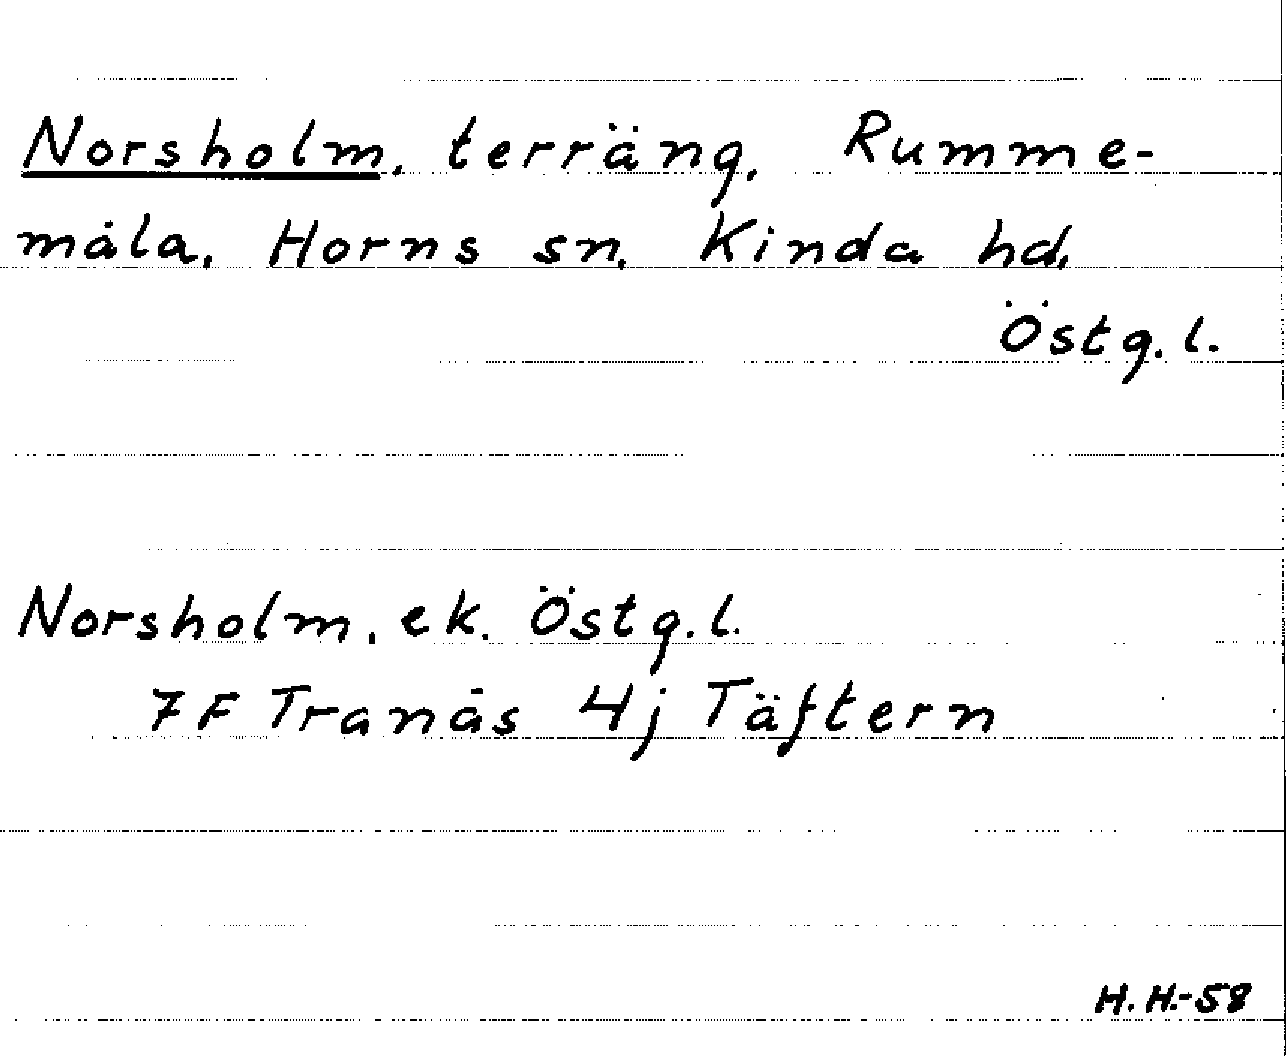 Norsholm, terräng, Rumme-
måla, Horns sn, Kinda hd,
Östg. l.
Norsholm, ek. Östg. l.
7F Tranås 4j Täftern
H. H.-58